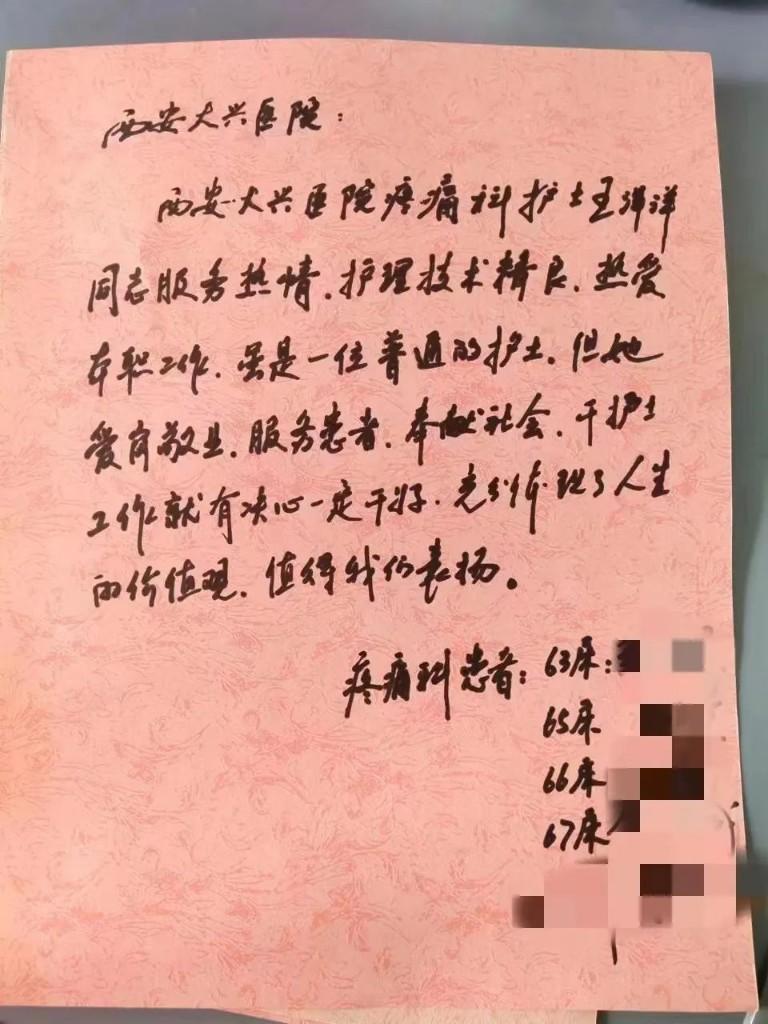 西安大兴医院：
西安大兴医院疼痛科护士王洋洋
同志服务热情，护理技术精良，热爱
本职工作，虽是一位普通的护士，但她
爱岗敬业，服务患者，奉献社会，干护士
工作就有决心一定干好，充分体现了人生
的价值观，值得我们表扬。
疼痛科患者：63床：
65床
66床
67床